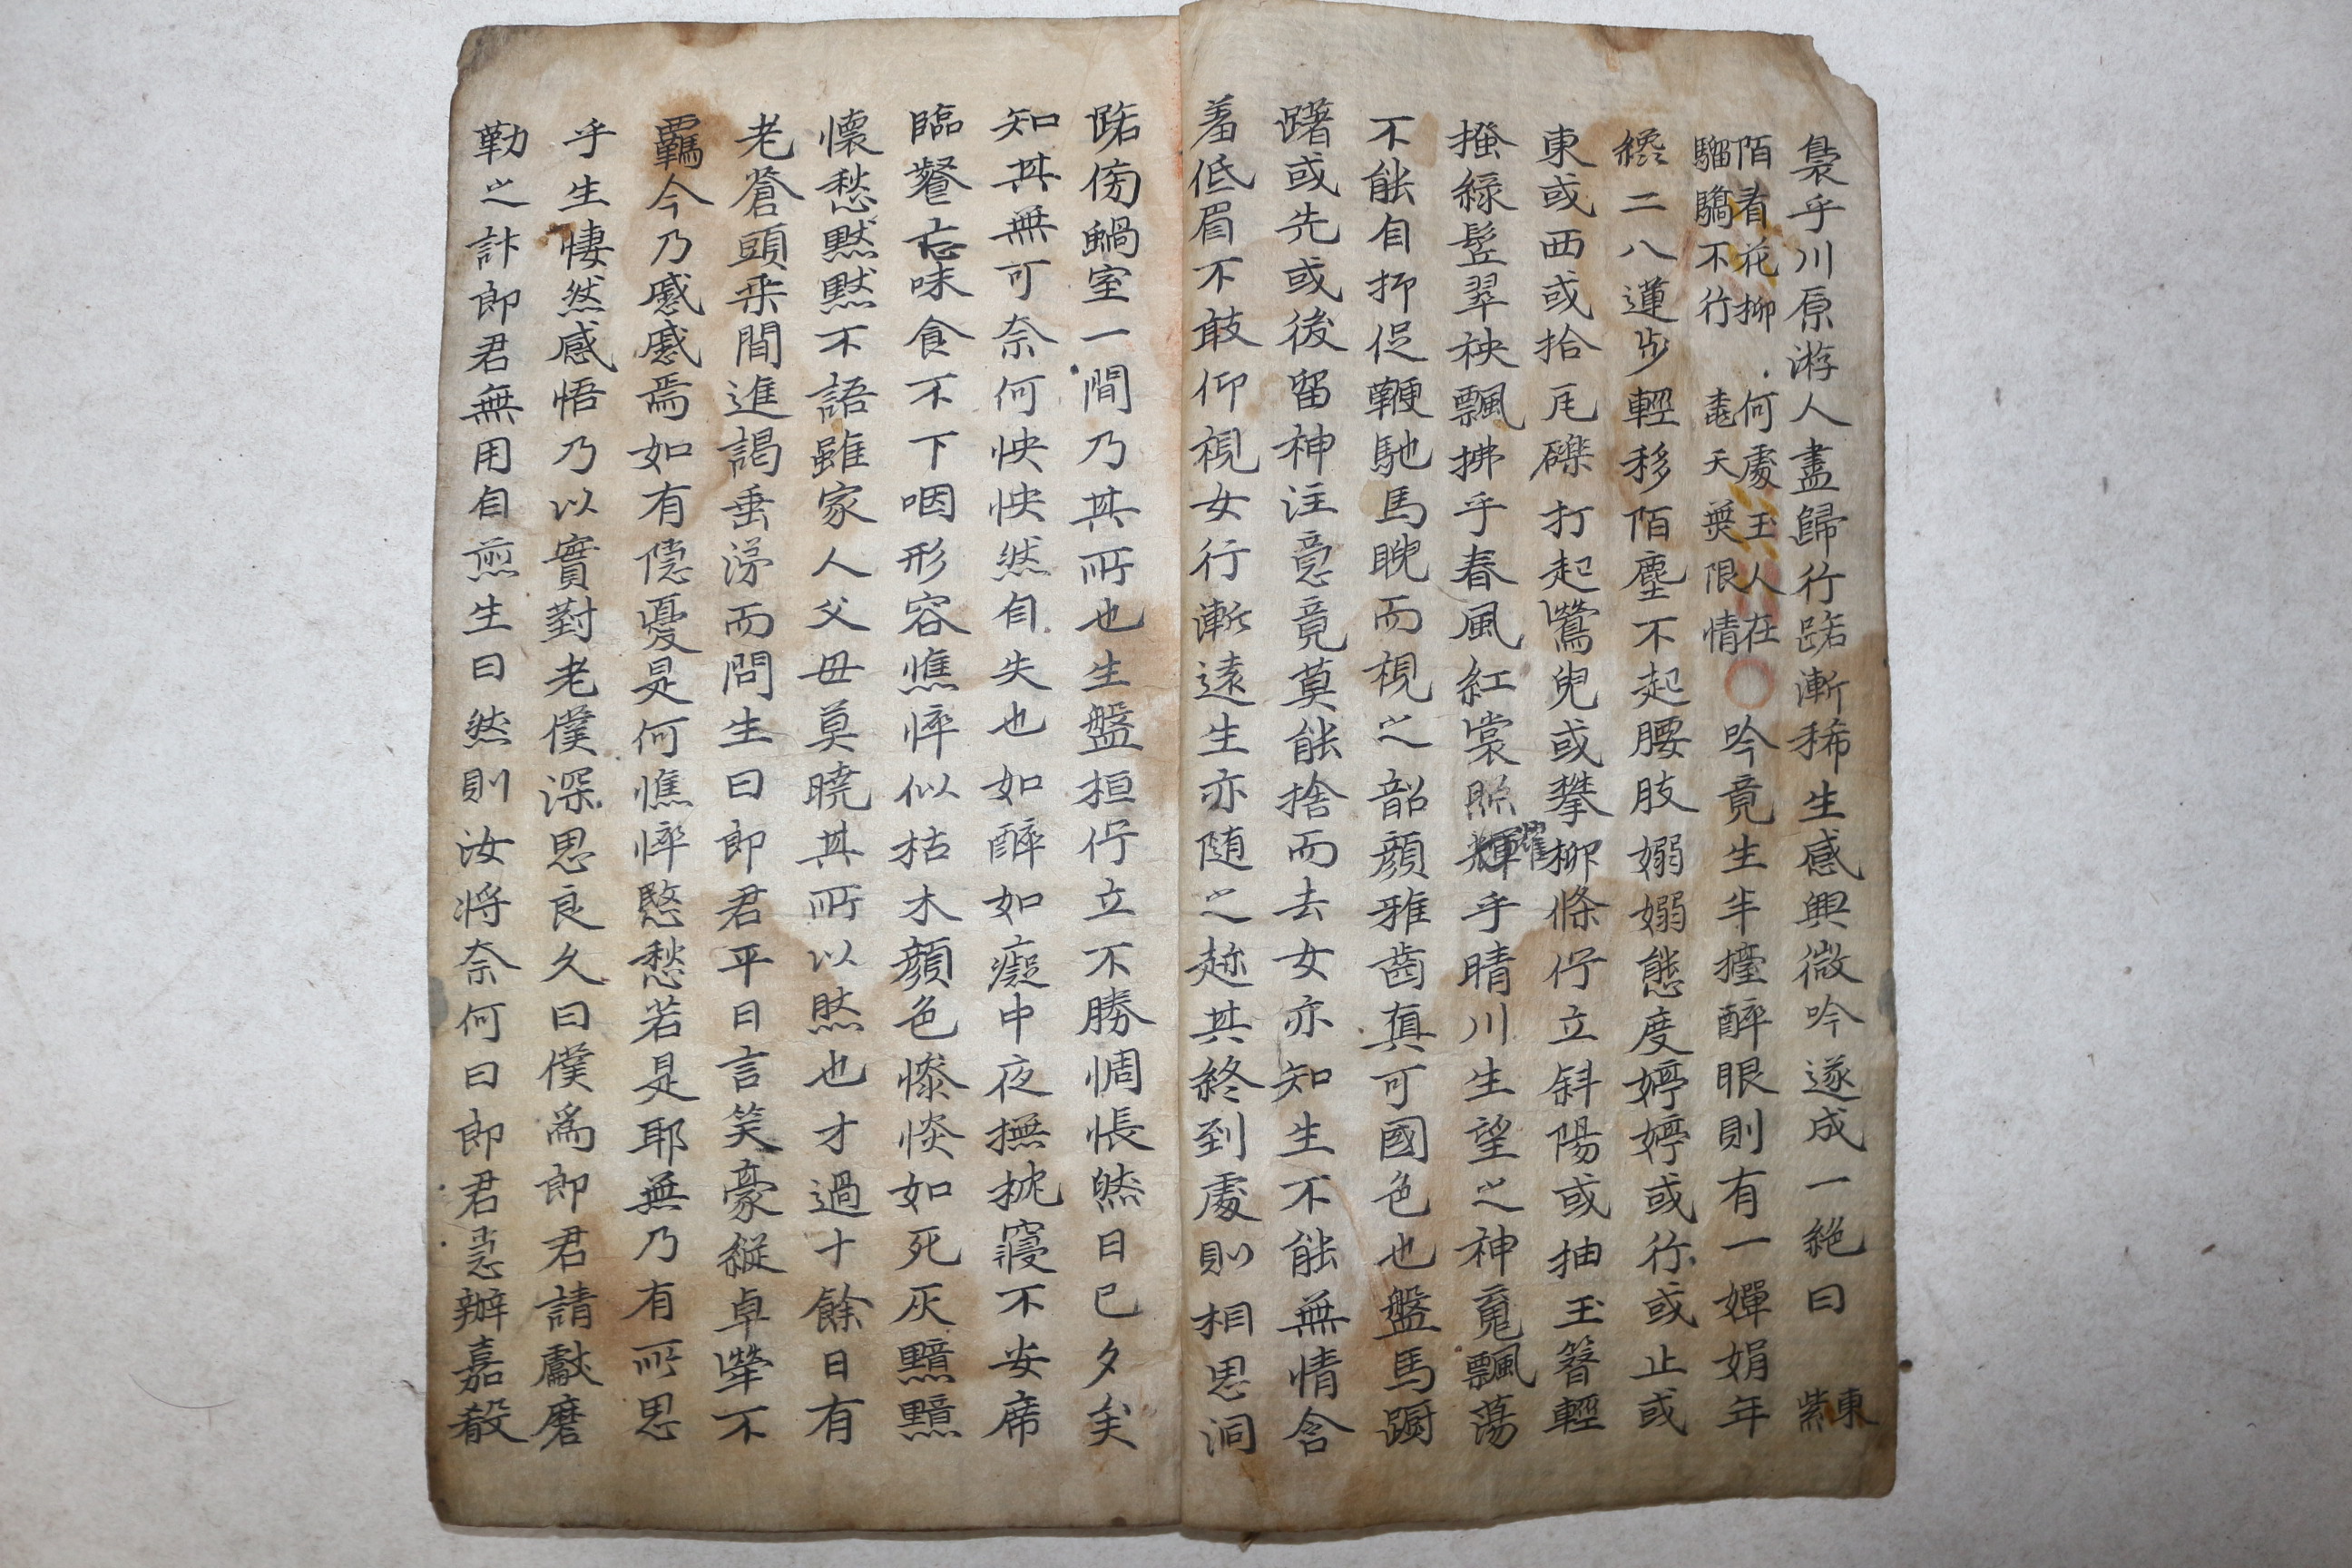 裊乎川原游人盡歸行路漸稀生感興微吟遂成一絶曰 東
紫
陌看花柳 何處玉人在
騮驕不行 桃天無限情 吟竟生半擡醉眼則有一嬋娟年
纔二八蓮步輕移陌塵不起腰肢嫋嫋態度婷婷或行或止或
東或西或拾瓦礫打起鶯兒或攀柳條佇立斜陽或抽玉簪輕
掻緑髩翠袂飄拂乎春風紅裳照耀乎晴川生望之神魂飄蕩
不能自抑促鞭馳馬睨而視之韶顔雅齒真可國色也盤馬躕
躇或先或後留神注意竟莫能捨而去女亦知生不能無情含
羞低眉不敢仰視女行漸遠生亦随之趂其終到處則相思洞
路傍蝸室一間乃其所也生盤桓佇立不勝惆悵然日已夕矣
知其無可奈何怏怏然自失也如醉如癡中夜撫枕寢不安席
臨餐忘味食不下咽形容憔悴似枯木顔色惨惔如死灰黯黯
懷愁黙黙不語雖家人父母莫曉其所以然也才過十餘日有
老蒼頭乘間進謁垂涕而問生曰郎君平日言笑豪縱卓犖不
羈今乃慼慼焉如有隱憂是何憔悴慜愁若是耶無乃有所思
乎生悽然感悟乃以實對老僕深思良久曰僕爲郎君請獻磨
勒之計郎君無用自煎生曰然則汝將奈何曰郎君急辦嘉殽